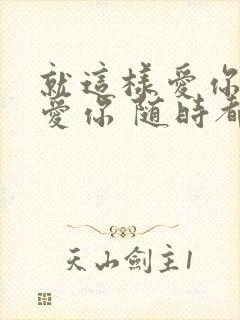 就這樣愛你
愛你 随時都
天山劍主1